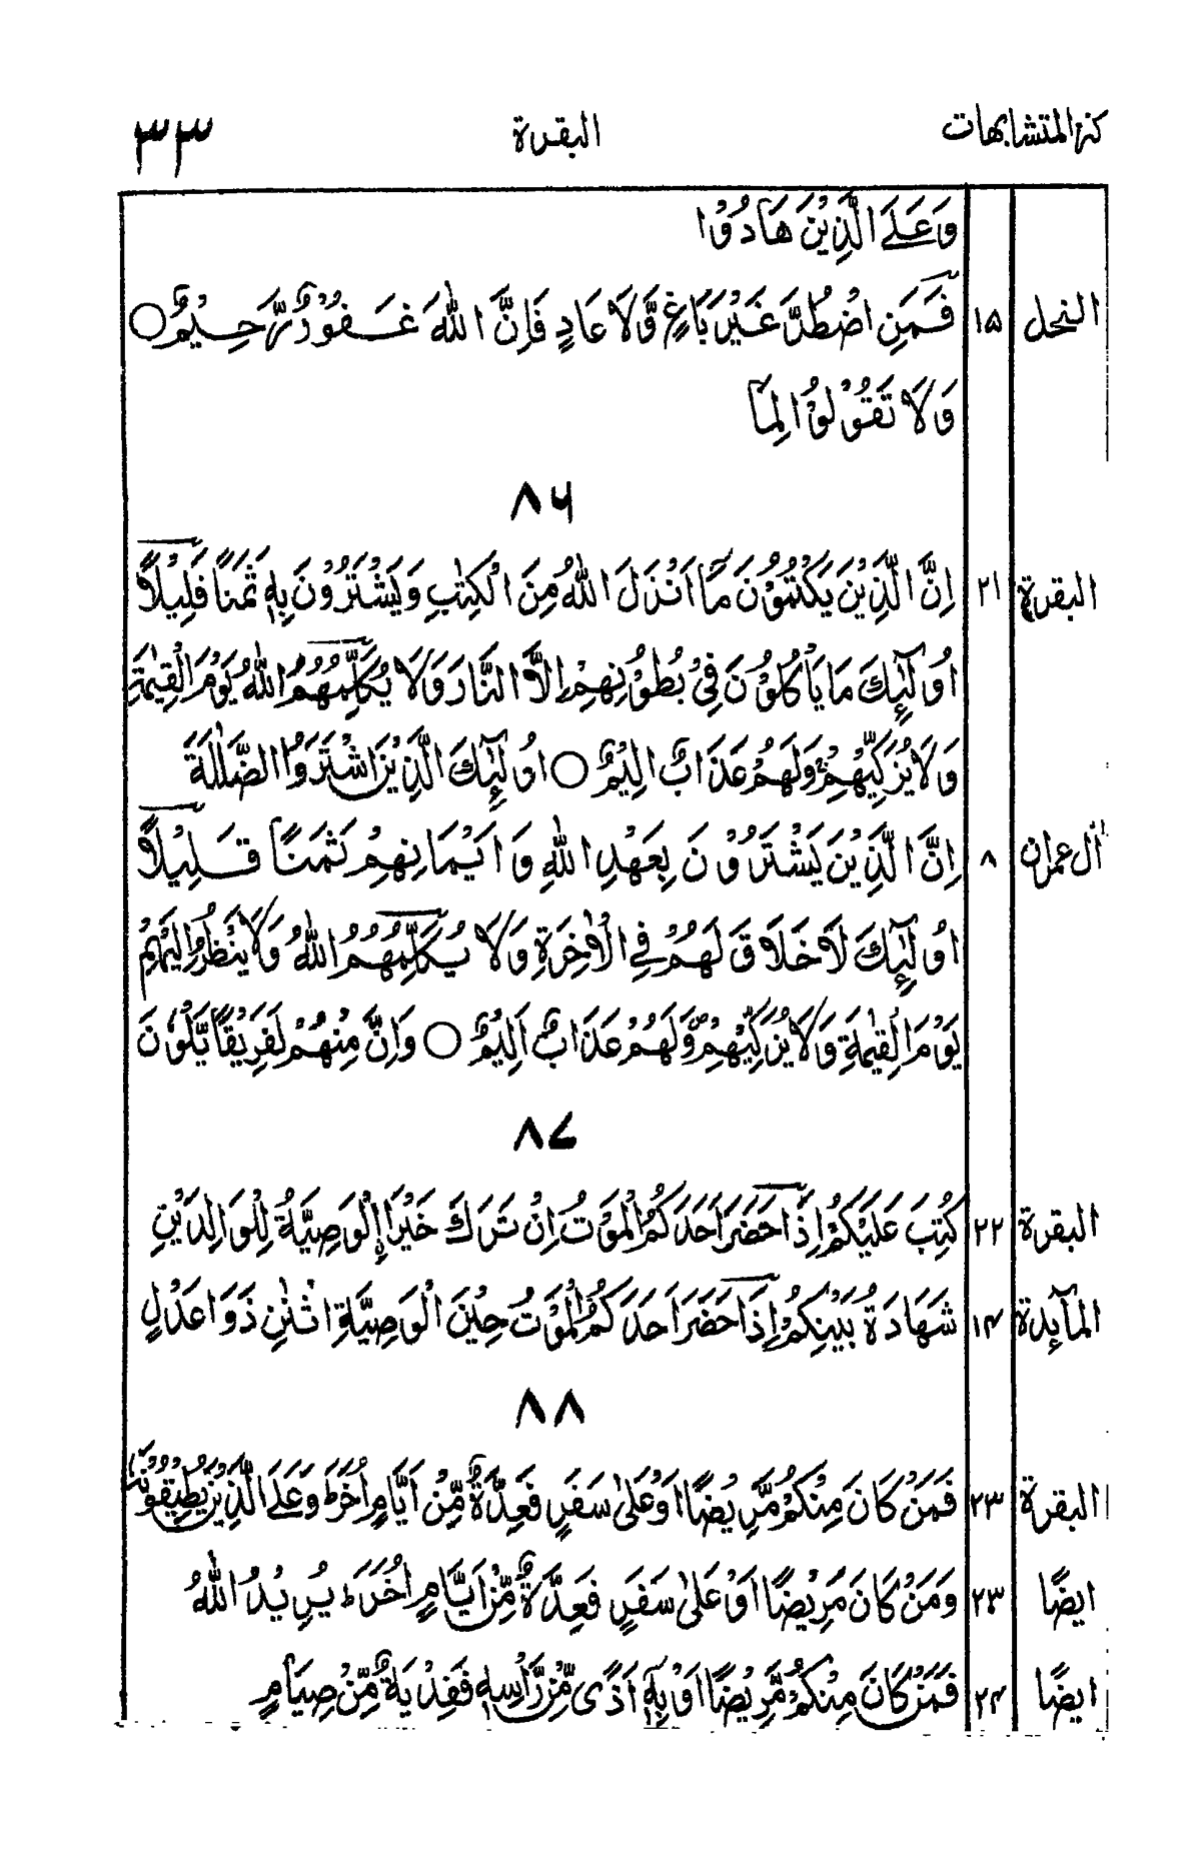 كنز المتشابهات البقرة ٣٣
وَعَلَى الَّذِيْنَ هَادُوْا
النحل ١٥ فَمَنِ اضْطُرَّ غَيْرَ بَاغٍ وَّلَا عَادٍ فَاِنَّ اللّٰهَ غَفُوْرٌ رَّحِيْمٌ ○
وَلَا تَقُوْلُوْا لِمَا
٨٦
البقرة ٢١ اِنَّ الَّذِيْنَ يَكْتُمُوْنَ مَآ اَنْزَلَ اللّٰهُ مِنَ الْكِتٰبِ وَيَشْتَرُوْنَ بِهٖ ثَمَنًا قَلِيْلًا
اُولٰٓئِكَ مَا يَاْكُلُوْنَ فِيْ بُطُوْنِهِمْ اِلَّا النَّارَ وَلَا يُكَلِّمُهُمُ اللّٰهُ يَوْمَ الْقِيٰمَةِ
وَلَا يُزَكِّيْهِمْ وَلَهُمْ عَذَابٌ اَلِيْمٌ ○ اُولٰٓئِكَ الَّذِيْنَ اشْتَرَوُا الضَّلٰلَةَ
اٰل عمران ٨ اِنَّ الَّذِيْنَ يَشْتَرُوْنَ بِعَهْدِ اللّٰهِ وَاَيْمَانِهِمْ ثَمَنًا قَلِيْلًا
اُولٰٓئِكَ لَا خَلَاقَ لَهُمْ فِي الْاٰخِرَةِ وَلَا يُكَلِّمُهُمُ اللّٰهُ وَلَا يَنْظُرُ اِلَيْهِمْ
يَوْمَ الْقِيٰمَةِ وَلَا يُزَكِّيْهِمْ وَلَهُمْ عَذَابٌ اَلِيْمٌ ○ وَاِنَّ مِنْهُمْ لَفَرِيْقًا يَّلْوٗنَ
٨٧
البقرة ٢٢ كُتِبَ عَلَيْكُمْ اِذَا حَضَرَ اَحَدَكُمُ الْمَوْتُ اِنْ تَرَكَ خَيْرًا اِلْوَصِيَّةُ لِلْوَالِدَيْنِ
المآئدة ١٤ شَهَادَةُ بَيْنِكُمْ اِذَا حَضَرَ اَحَدَكُمُ الْمَوْتُ حِيْنَ الْوَصِيَّةِ اثْنٰنِ ذَوَا عَدْلٍ
٨٨
البقرة ٢٣ فَمَنْ كَانَ مِنْكُمْ مَّرِيْضًا اَوْ عَلٰى سَفَرٍ فَعِدَّةٌ مِّنْ اَيَّامٍ اُخَرَ ط وَعَلَى الَّذِيْنَ يُطِيْقُوْنَهٗ
ايضًا ٢٣ وَمَنْ كَانَ مَرِيْضًا اَوْ عَلٰى سَفَرٍ فَعِدَّةٌ مِّنْ اَيَّامٍ اُخَرَ ط يُرِيْدُ اللّٰهُ
ايضًا ٢٤ فَمَنْ كَانَ مِنْكُمْ مَّرِيْضًا اَوْ بِهٖٓ اَذًى مِّنْ رَّاْسِهٖ فَفِدْيَةٌ مِّنْ صِيَامٍ